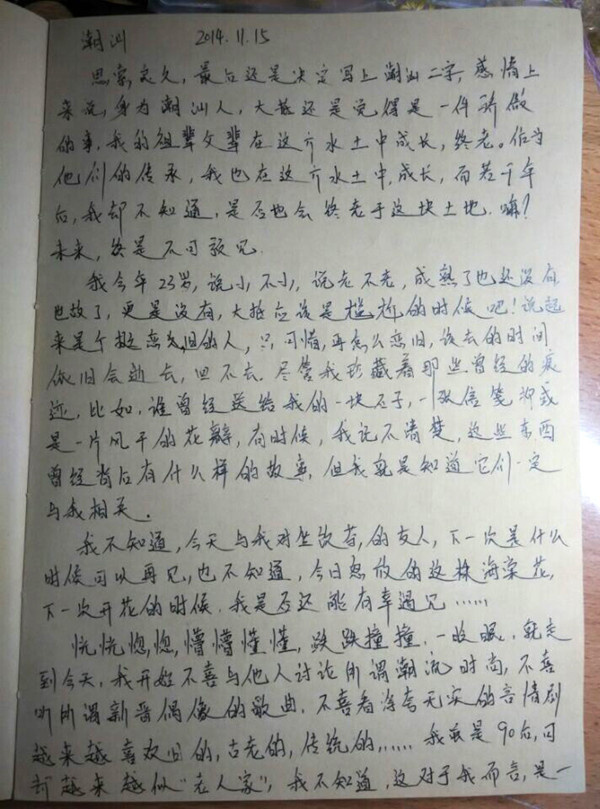 潮汕 2014.11.15
思索良久，最后还是决定写上潮汕二字，感情上
来说，身为潮汕人，大抵还是觉得是一件骄傲
的事，我的祖辈父辈在这片水土中成长，终老。作为
他们的传承，我也在这片水土中，成长，而若干年
后，我却不知道，是否也会终老于这块土地，嘛？
未来，终是不可预见。
我今年23岁，说小不小，说老不老，成熟了也还没有，
世故了，更是没有，大抵应该是尴尬的时候吧！说起
来是个挺恋旧的人，只可惜，再怎么恋旧，该去的时间
依旧会逝去，回不去。尽管我珍藏着那些曾经的痕
迹，比如，谁曾经送给我的一块石子，一张信笺抑或
是一片风干的花瓣，有时候，我记不清楚，这些东西
曾经背后有什么样的故事，但我就是知道它们一定
与我相关。
我不知道，今天与我对坐饮茗，的友人，下一次是什么
时候可以再见，也不知道，今日怒放的这株海棠花，
下一次开花的时候，我是否还能有幸遇见……
恍恍惚惚，懵懵懂懂，跌跌撞撞，一眨眼，就走
到今天，我开始不喜与他人讨论所谓潮流时尚，不喜
听所谓新晋偶像的歌曲，不喜看浮夸无实的言情剧
越来越喜欢旧的，古老的，传统的……我虽是90后，可
却越来越似“老人家”，我不知道，这对于我而言，是一